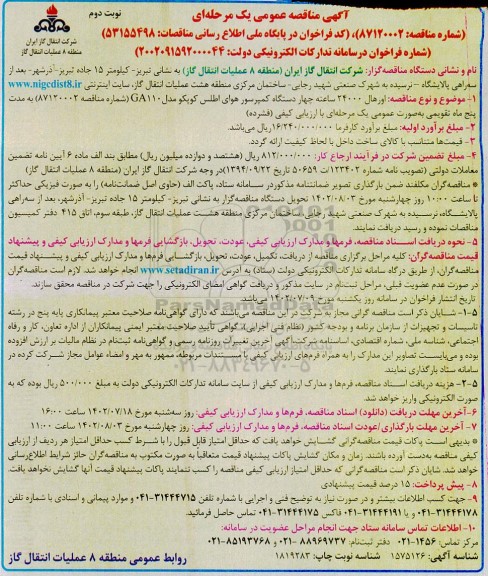 نوبت دوم
آگهی مناقصه عمومی یک مرحله‌ای
(شماره مناقصه: ۸۷۱۲۰۰۰۲)، (کد فراخوان در پایگاه ملی اطلاع رسانی مناقصات: ۵۳۱۵۵۴۹۸)
(شماره فراخوان درسامانه تدارکات الکترونیکی دولت: ۲۰۰۲۰۹۱۵۹۲۰۰۰۰۴۴)
شرکت انتقال گاز ایران
منطقه ۸ عملیات انتقال گاز
نام و نشانی دستگاه مناقصه‌گزار: شرکت انتقال گاز ایران (منطقه ۸ عملیات انتقال گاز) به نشانی تبریز- کیلومتر ۱۵ جاده تبریز-آذرشهر- بعد از
سه‌راهی پالایشگاه – نرسیده به شهرک صنعتی شهید رجایی- ساختمان مرکزی منطقه هشت عملیات انتقال گاز، سایت اینترنتی www.nigcdist8.ir
۱- موضوع و نوع مناقصه: اورهال ۲۴۰۰۰ ساعته چهار دستگاه کمپرسور هوای اطلس کوپکو مدل GA۱۱۰ (شماره مناقصه ۸۷۱۲۰۰۰۲) به مدت
پنج ماه تقویمی به‌صورت عمومی یک مرحله‌ای با ارزیابی کیفی (فشرده)
۲- مبلغ برآورد اولیه: مبلغ برآورد کارفرما ۱۶/۲۴۰/۰۰۰/۰۰۰ ریال می‌باشد.
۳- قیمت‌ها متناسب با کالای ساخت داخل با لحاظ کیفیت ارائه گردد.
۴- مبلغ تضمین شرکت در فرآیند ارجاع کار: ۸۱۲/۰۰۰/۰۰۰ ریال (هشتصد و دوازده میلیون ریال) مطابق بند الف ماده ۶ آیین نامه تضمین
معاملات دولتی (تصویب نامه شماره ۱۲۳۴۰۲/ت ۵۰۶۵۹ه تاریخ ۱۳۹۴/۰۹/۲۲) در وجه شرکت انتقال گاز ایران (منطقه ۸ عملیات انتقال گاز)
* مناقصه‌گران مکلفند ضمن بارگذاری تصویر ضمانتنامه مذکور در سامانه ستاد، پاکت الف (حاوی اصل ضمانتنامه) را به صورت فیزیکی حداکثر
تا ساعت ۱۰:۰۰ روز چهارشنبه مورخ ۱۴۰۲/۰۸/۰۳ تحویل دستگاه مناقصه‌گزار به نشانی تبریز- کیلومتر ۱۵ جاده تبریز- آذرشهر، بعد از سه‌راهی
پالایشگاه، نرسیده به شهرک صنعتی شهید رجایی، ساختمان مرکزی منطقه هشت عملیات انتقال گاز، طبقه سوم، اتاق ۴۱۵ دفتر کمیسیون
مناقصات نموده و رسید دریافت نمایند.
۵- نحوه دریافت اسناد مناقصه، فرمها و مدارک ارزیابی کیفی، عودت، تحویل، بازگشایی فرمها و مدارک ارزیابی کیفی و پیشنهاد
قیمت مناقصه‌گران: کلیه مراحل برگزاری مناقصه از دریافت، تکمیل، عودت، تحویل، بازگشایی فرم‌ها و مدارک ارزیابی کیفی و پیشنهاد قیمت
مناقصه‌گران، از طریق درگاه سامانه تدارکات الکترونیکی دولت (ستاد) به آدرس www.setadiran.ir انجام خواهد شد. لازم است مناقصه‌گران
در صورت عدم عضویت قبلی، مراحل ثبت‌نام در سایت مذکور و دریافت گواهی امضای الکترونیکی را جهت شرکت در مناقصه محقق سازند.
تاریخ انتشار فراخوان در سامانه روز یکشنبه مورخ ۱۴۰۲/۰۷/۰۹ می‌باشد.
۵-۱- شایان ذکر است مناقصه گرانی مجاز به شرکت در مناقصه می‌باشند که دارای گواهی‌نامه صلاحیت معتبر پیمانکاری پایه پنج در رشته
تاسیسات و تجهیزات از سازمان برنامه و بودجه کشور (نظام فنی اجرایی)، گواهی تأیید صلاحیت معتبر ایمنی پیمانکاران از اداره تعاون، کار و رفاه
اجتماعی، شناسه ملی، شماره اقتصادی، اساسنامه شرکت، آگهی آخرین تغییرات روزنامه رسمی و گواهی‌نامه ثبت‌نام در نظام مالیات بر ارزش افزوده
بوده و می‌بایست تصاویر این مدارک را به همراه فرم‌های ارزیابی کیفی با مستندات مربوطه، ممهور به مهر و امضاء عوامل مجاز شرکت کرده در
سامانه ستاد بارگذاری نمایند.
۵-۲- هزینه دریافت اسناد مناقصه، فرم‌ها و مدارک ارزیابی کیفی از سایت سامانه تدارکات الکترونیکی دولت به مبلغ ۵۰۰/۰۰۰ ریال بوده که به
صورت الکترونیکی واریز خواهد شد.
۶- آخرین مهلت دریافت (دانلود) اسناد مناقصه، فرم‌ها و مدارک ارزیابی کیفی: روز سه‌شنبه مورخ ۱۴۰۲/۰۷/۱۸ ساعت ۱۶:۰۰
۷- آخرین مهلت بارگذاری/عودت اسناد مناقصه، فرم‌ها و مدارک ارزیابی کیفی: روز چهارشنبه مورخ ۱۴۰۲/۰۸/۰۳ ساعت ۱۱:۰۰
* بدیهی است پاکات قیمت مناقصه‌گرانی گشایش خواهد یافت که حداقل امتیاز قابل قبول را با شرط کسب حداقل امتیاز هر ردیف از ارزیابی
کیفی مناقصه به‌دست آورده باشند. زمان و مکان گشایش پاکات پیشنهاد قیمت متعاقباً به صورت مکتوب به مناقصه‌گران حائز شرایط اطلاع‌رسانی
خواهد شد. شایان ذکر است مناقصه‌گرانی که حداقل امتیاز ارزیابی کیفی مناقصه را کسب ننمایند پاکات پیشنهاد قیمت آنها گشایش نخواهد یافت.
۸- پیش پرداخت: ۱۵ درصد قیمت پیشنهادی
۹- جهت کسب اطلاعات بیشتر و در صورت نیاز به توضیح فنی و اجرایی با شماره تلفن ۳۱۴۴۴۷۱۵-۰۴۱ و موارد پیمانی و اسنادی با شماره تلفن
۳۱۴۴۴۱۷۸-۰۴۱ و یا ۳۱۴۴۴۱۹۱-۰۴۱ فاکس ۳۱۴۴۴۱۷۵-۰۴۱ تماس حاصل فرمائید.
۱۰- اطلاعات تماس سامانه ستاد جهت انجام مراحل عضویت در سامانه:
مرکز تماس: ۱۴۵۶-۰۲۱ دفتر ثبت‌نام: ۸۸۹۶۹۷۳۷-۰۲۱ و ۸۵۱۹۳۷۶۸-۰۲۱
شناسه آگهی: ۱۵۷۵۱۲۶ شناسه نوبت چاپ: ۱۸۱۹۲۸۳
روابط عمومی منطقه ۸ عملیات انتقال گاز
۰۲۱-۸۸۳۴۹۶۷۰-۵